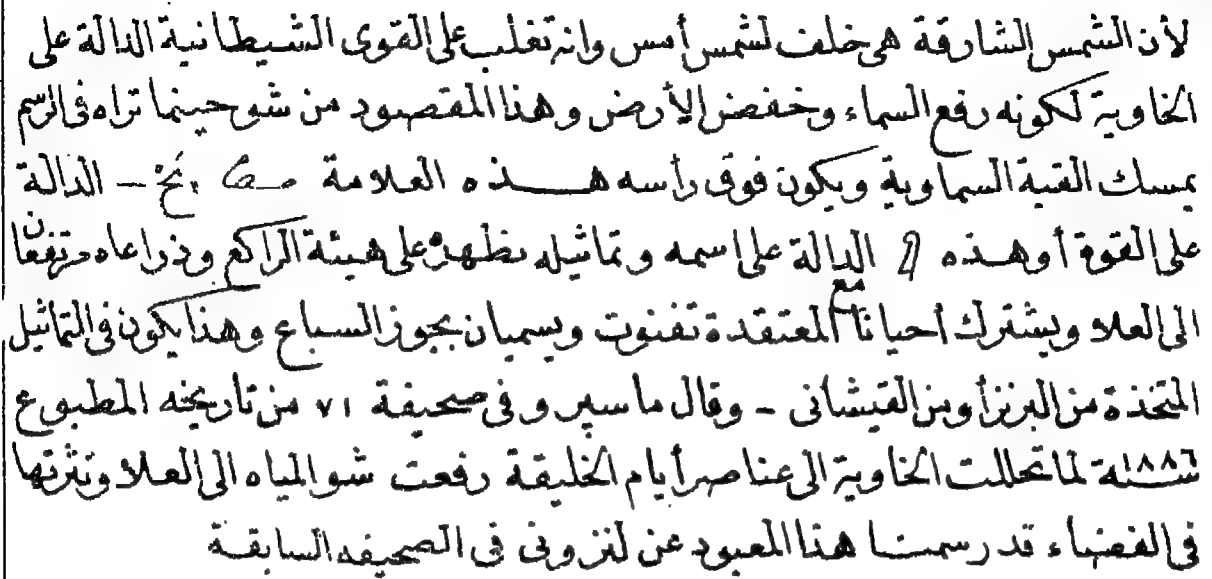 لأن الشمس الشارقة هى خلف لشمس أمس وانه تغلب على القوى الشيطانية الدالة على
الخاوية لكونه رفع السماء وخفض الأرض وهذا المقصود من شو حينما تراه فى الرسم
يمسك القبة السماوية ويكون فوق رأسه هـــذه العلامة نخ – الدالة
على القوة أو هــذه الدالة على اسمه وتماثيله تظهره على هيئة الراكع وذراعاه مرتفعان
الى العلا ويشترك أحيانا مع المعتقدة تفنوت ويسميان بجوز السباع وهذا يكون فى التماثيل
المتخذة من البرنز أو من القيشانى – وقال ماسپرو فى صحيفة ٧١ من تاريخه المطبوع
سنة ١٨٨٦ لما تحللت الخاوية الى عناصر أيام الخليقة رفعت شو المياه الى العلا ونثرتها
فى الفضاء قد رسمنا هذا المعبود عن لنزونى فى الصحيفه السابقة